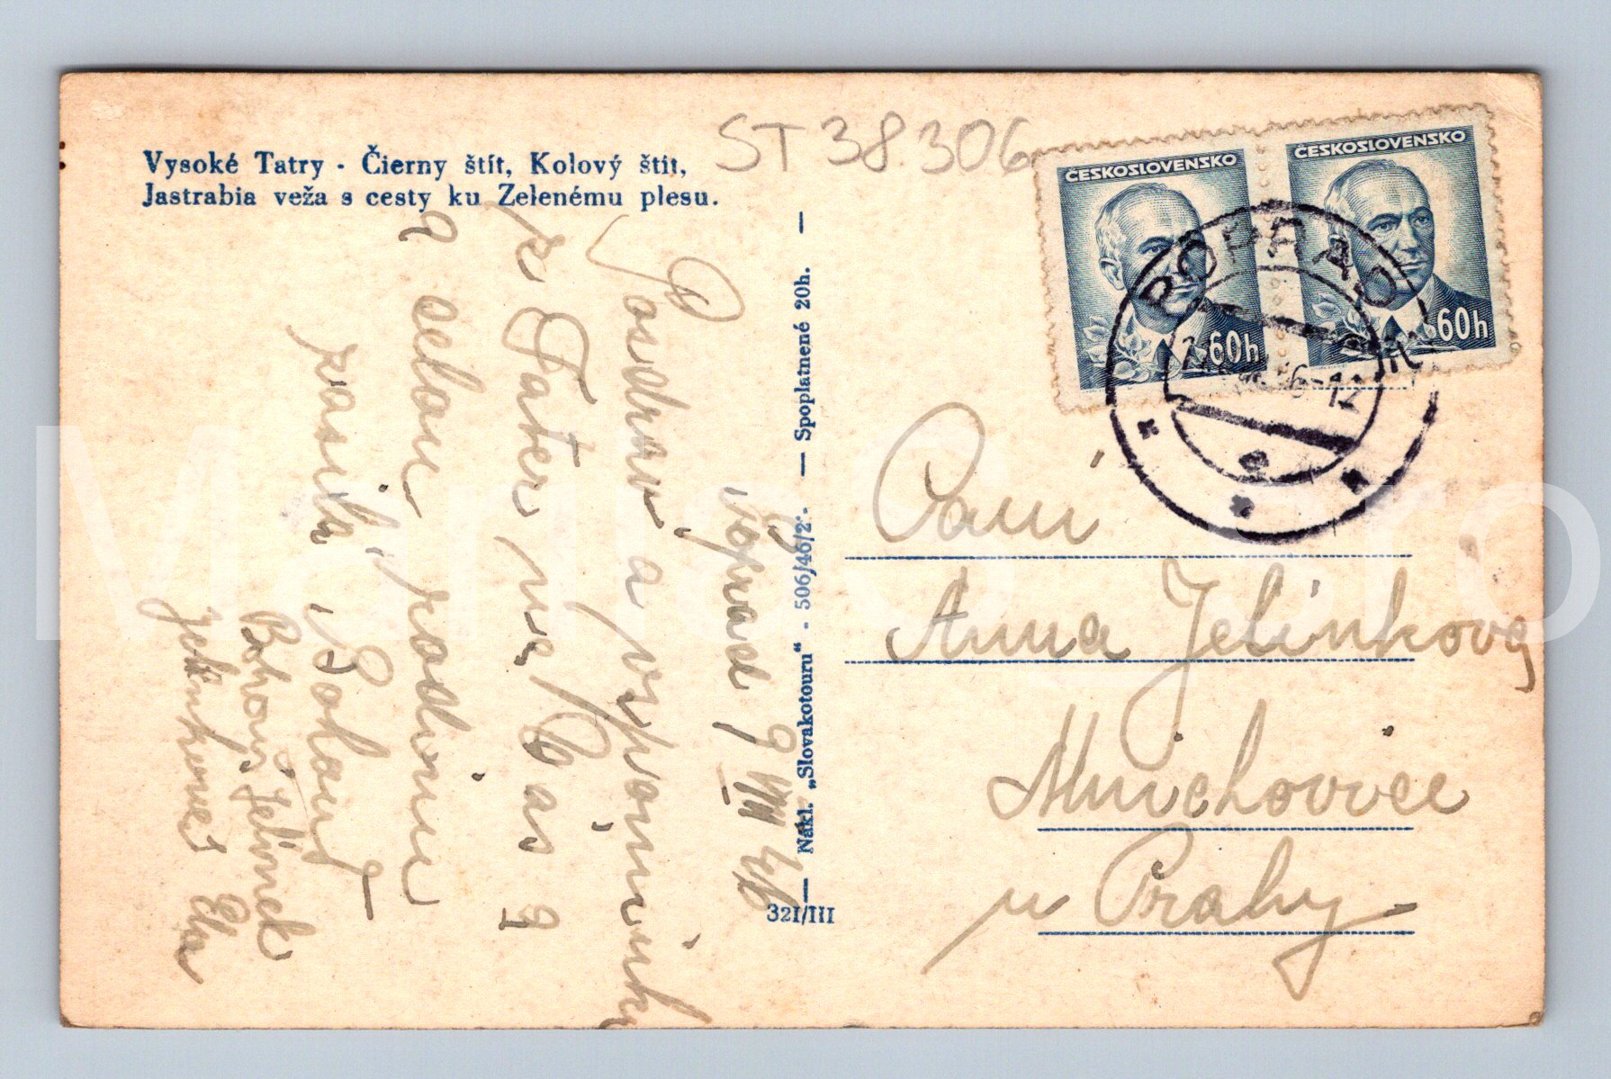 Vysoké Tatry - Čierny štít, Kolový štít,
Jastrabia veža s cesty ku Zelenému plesu.
ST 38.306
ČESKOSLOVENSKO
60h
ČESKOSLOVENSKO
60h
POPRAD
Poprad 9 VIII 46
Pozdrav a vzpomínku
z Tater na Vás
a celou rodinu
Bohouš Jelínek
Jelínkové
Nákl. „Slovakotouru" - 506/46/2. — Spoplatnené 20h. —
321/III
Paní
Anna Jelínkova
Mnichovice
u Prahy